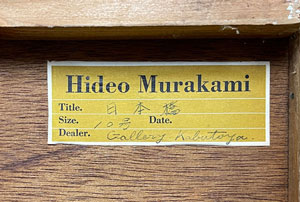 Hideo Murakami
Title. 日本橋
Size. 10号 Date.
Dealer. Gallery Kabutoya.